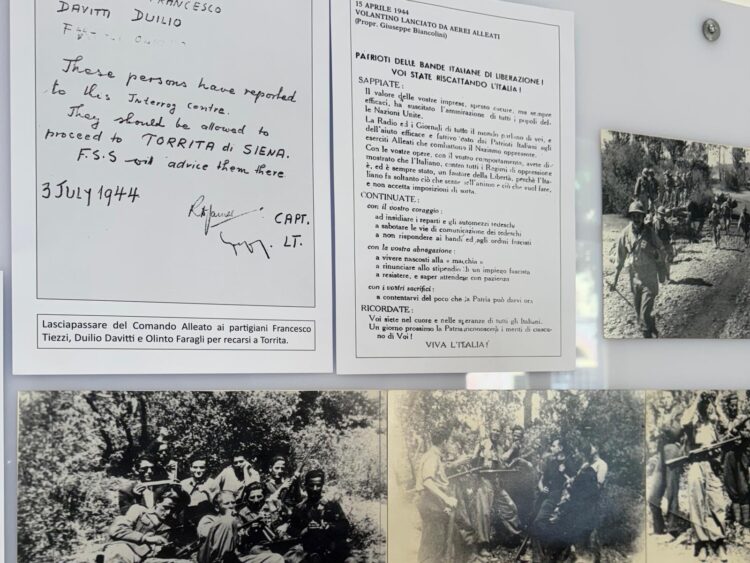 FRANCESCO
DAVITTI DUILIO
These persons have reported
to this Interrog centre.
They should be allowed to
proceed to TORRITA di SIENA.
F.S.S will advice them there
3 JULY 1944
CAPT.
LT.
Lasciapassare del Comando Alleato ai partigiani Francesco
Tiezzi, Duilio Davitti e Olinto Faragli per recarsi a Torrita.
15 APRILE 1944
VOLANTINO LANCIATO DA AEREI ALLEATI
(Propr. Giuseppe Biancolini)
PATRIOTI DELLE BANDE ITALIANE DI LIBERAZIONE!
VOI STATE RISCATTANDO L'ITALIA!
SAPPIATE:
Il valore delle vostre imprese, spesso oscure, ma sempre
efficaci, ha suscitato l'ammirazione di tutti i popoli del-
le Nazioni Unite.
La Radio ed i Giornali di tutto il mondo parlano di voi, e
dell'aiuto efficace e fattivo dato dai Patrioti Italiani agli
eserciti Alleati che combattono il Nazismo oppressore.
Con le vostre opere, con il vostro comportamento, avete di-
mostrato che l'Italiano, contro tutti i Regimi di oppressione
è, ed è sempre stato, un fautore della Libertà, perchè l'Ita-
liano fa soltanto ciò che sente nell'animo e ciò che vuol fare,
e non accetta imposizioni di sorta.
CONTINUATE:
con il vostro coraggio:
ad insidiare i reparti e gli automezzi tedeschi
a sabotare le vie di comunicazione dei tedeschi
a non rispondere ai bandi ed agli ordini fascisti
con la vostra abnegazione:
a vivere nascosti alla « macchia »
a rinunciare allo stipendio di un impiego fascista
a resistere, e saper attendere con pazienza
con i vostri sacrifici:
a contentarvi del poco che la Patria può darvi ora
RICORDATE:
Voi siete nel cuore e nelle speranze di tutti gli Italiani.
Un giorno prossimo la Patria riconoscerà i meriti di ciascu-
no di Voi!
VIVA L'ITALIA!